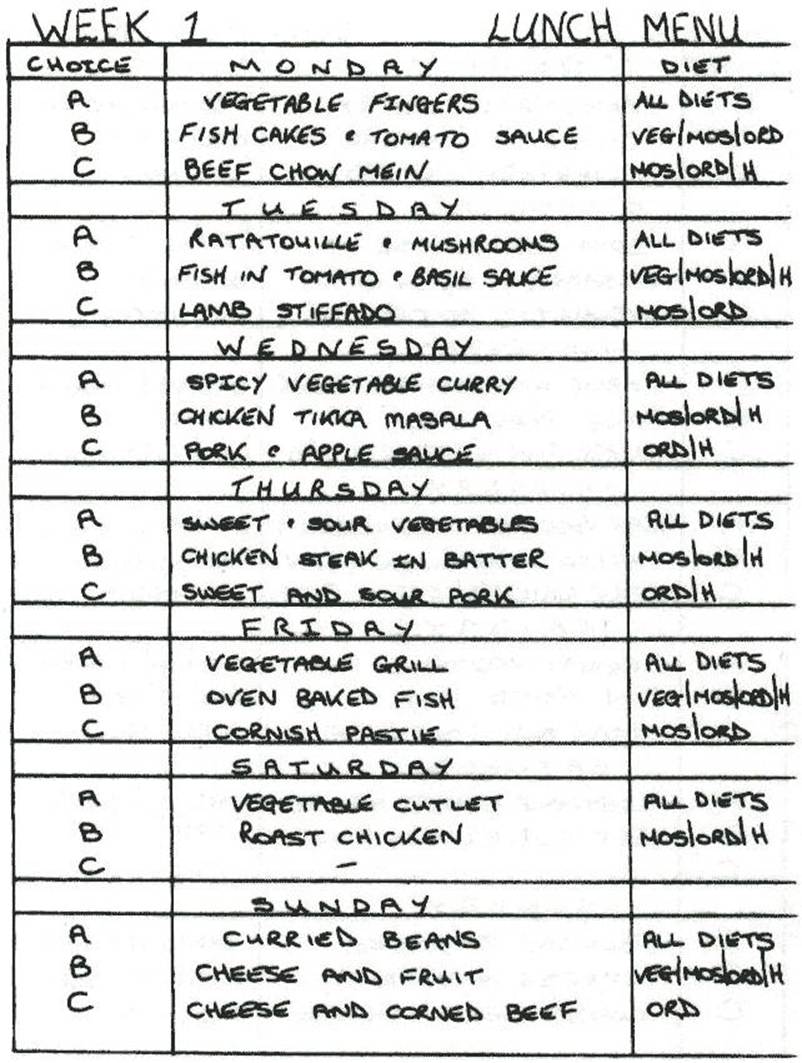 WEEK 1 LUNCH MENU
CHOICE MONDAY DIET
A VEGETABLE FINGERS ALL DIETS
B FISH CAKES & TOMATO SAUCE VEG/MOS/ORD
C BEEF CHOW MEIN MOS/ORD/H
TUESDAY
A RATATOUILLE & MUSHROOMS ALL DIETS
B FISH IN TOMATO & BASIL SAUCE VEG/MOS/ORD/H
C LAMB STIFFADO MOS/ORD
WEDNESDAY
A SPICY VEGETABLE CURRY ALL DIETS
B CHICKEN TIKKA MASALA MOS/ORD/H
C PORK & APPLE SAUCE ORD/H
THURSDAY
A SWEET & SOUR VEGETABLES ALL DIETS
B CHICKEN STEAK IN BATTER MOS/ORD/H
C SWEET AND SOUR PORK ORD/H
FRIDAY
A VEGETABLE GRILL ALL DIETS
B OVEN BAKED FISH VEG/MOS/ORD/H
C CORNISH PASTIE MOS/ORD
SATURDAY
A VEGETABLE CUTLET ALL DIETS
B ROAST CHICKEN MOS/ORD/H
C -
SUNDAY
A CURRIED BEANS ALL DIETS
B CHEESE AND FRUIT VEG/MOS/ORD/H
C CHEESE AND CORNED BEEF ORD